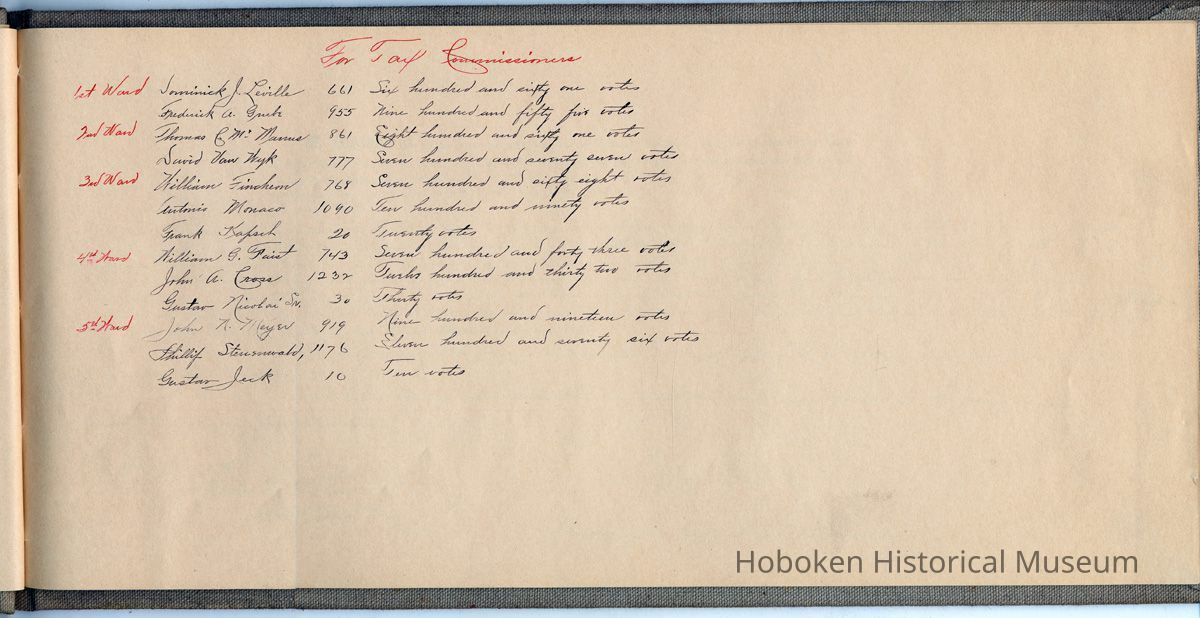 For Tax Commissioners
1st Ward Dominick J. Leville 661 Six hundred and sixty one votes
Frederick A. 955 Nine hundred and fifty five votes
2nd Ward Thomas Mc Manus 861 Eight hundred and sixty one votes
David Van Wyk 777 Seven hundred and seventy seven votes
3rd Ward William Fincken 768 Seven hundred and sixty eight votes
Antonio Monaco 1090 Ten hundred and ninety votes
Frank Kapsch 20 Twenty votes
4th Ward William G. Faist 743 Seven hundred and forty three votes
John A. Cross 1232 hundred and thirty two votes
Gustav Nicolai Sr. 30 Thirty votes
5th Ward John N. Meyer 919 Nine hundred and nineteen votes
Phillip 1176 Eleven hundred and seventy six votes
Gustav Jeck 10 Ten votes
Hoboken Historical Museum